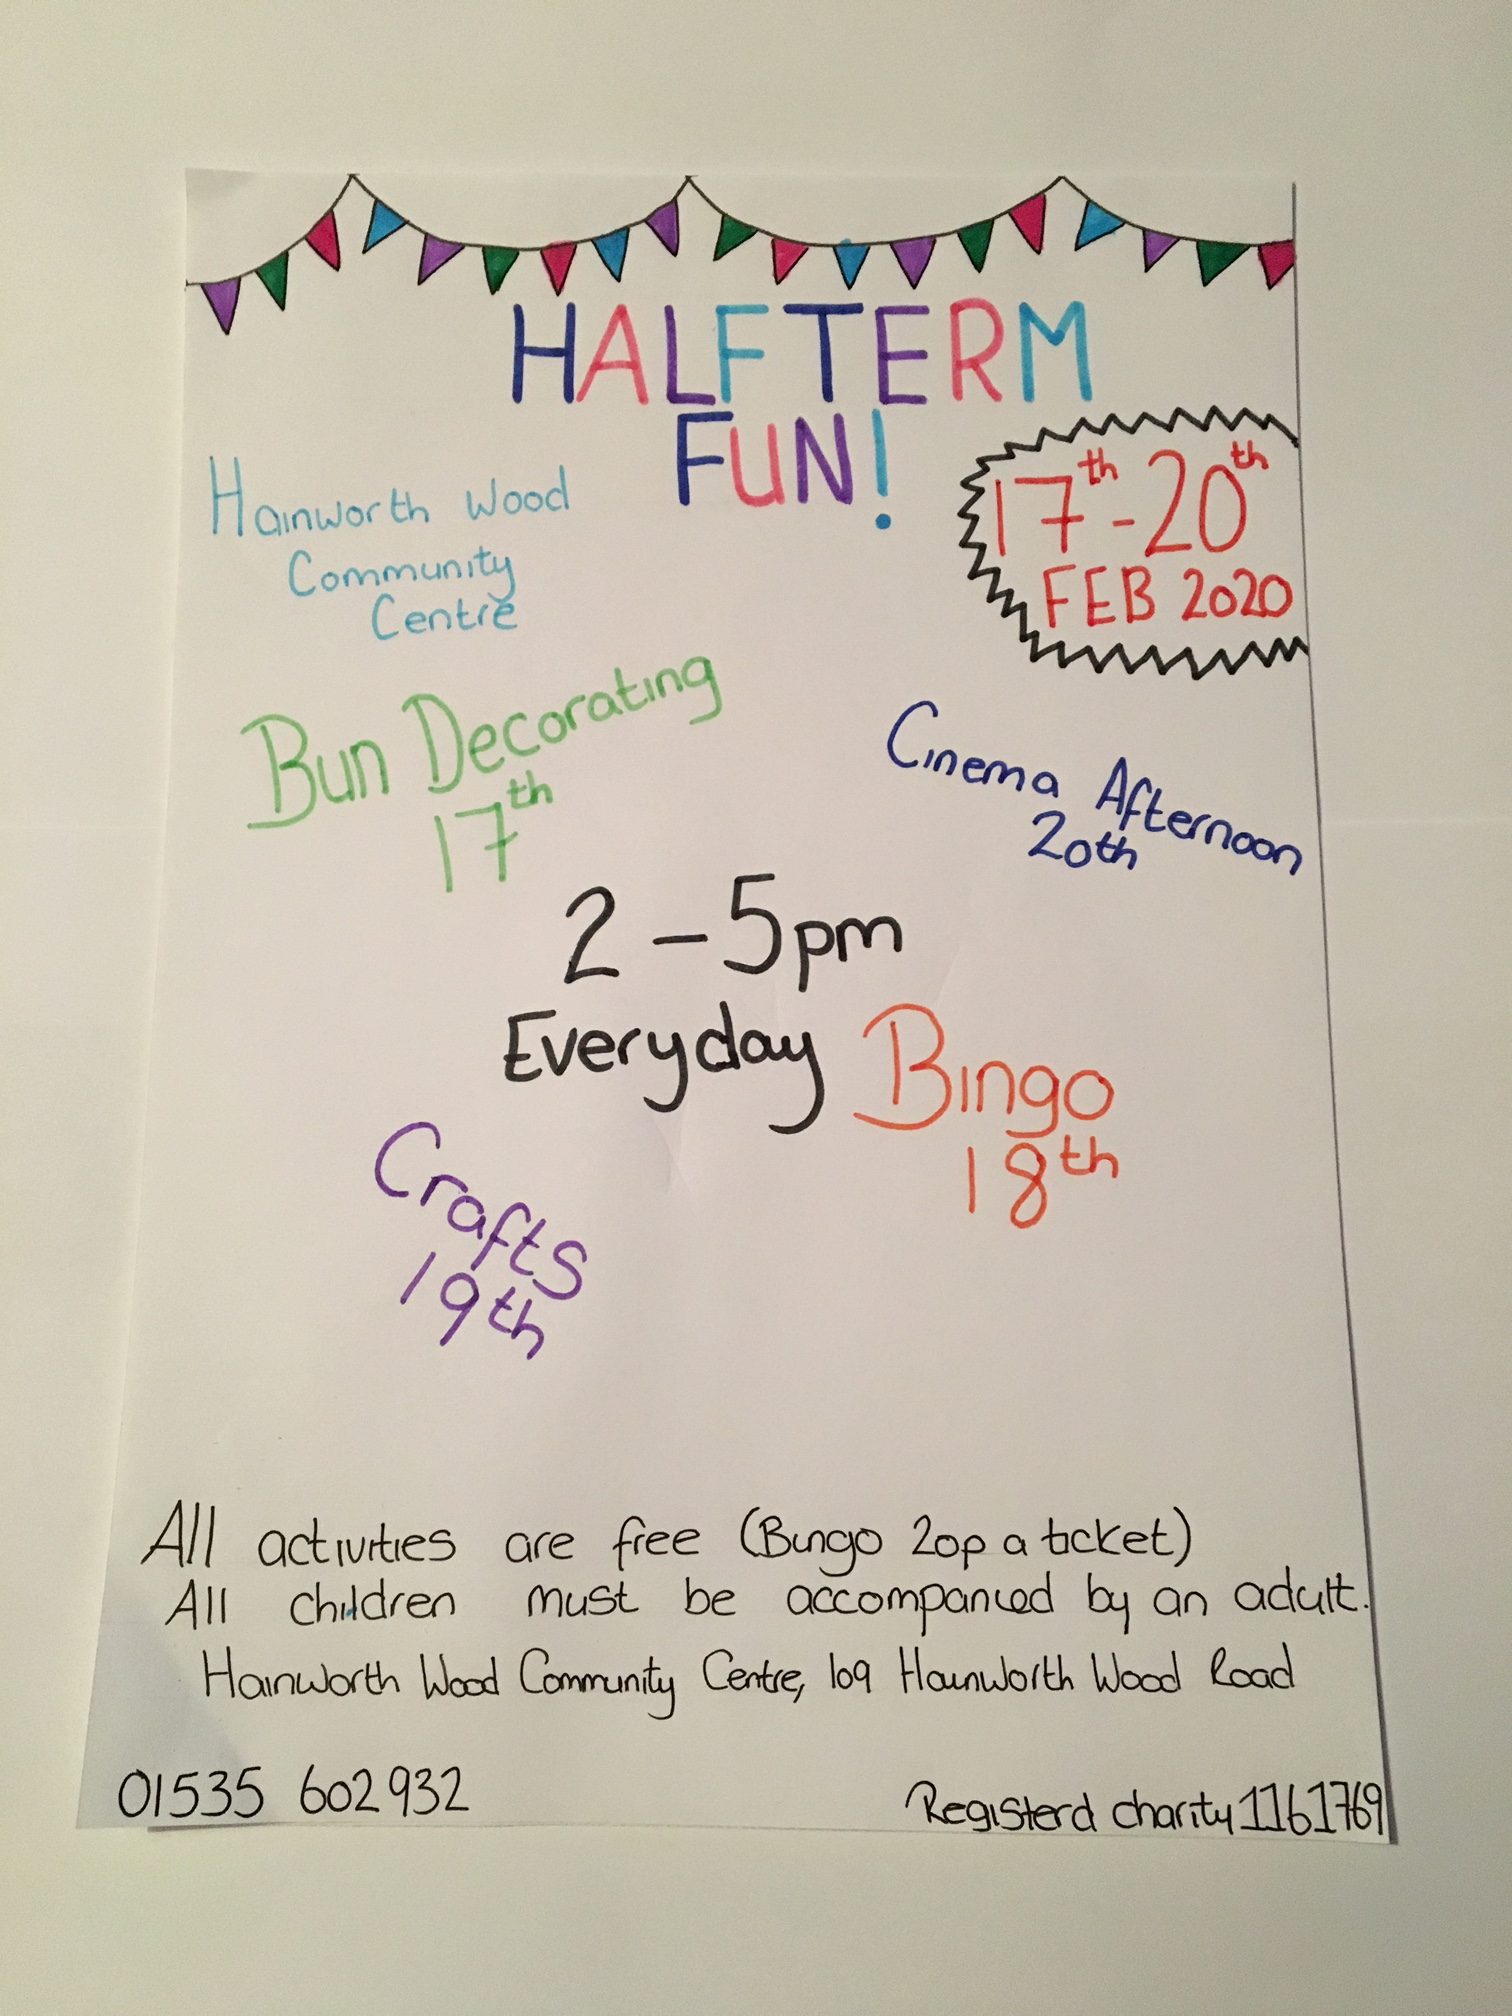 HALF TERM
FUN!
Hainworth Wood
Community
Centre
17th - 20th
FEB 2020
Bun Decorating
17th
Cinema Afternoon
20th
2 - 5pm
Everyday
Bingo
18th
Crafts
19th
All activities are free (Bingo 20p a ticket)
All children must be accompanied by an adult.
Hainworth Wood Community Centre, 109 Hainworth Wood Road
01535 602932
Registerd charity 1161769